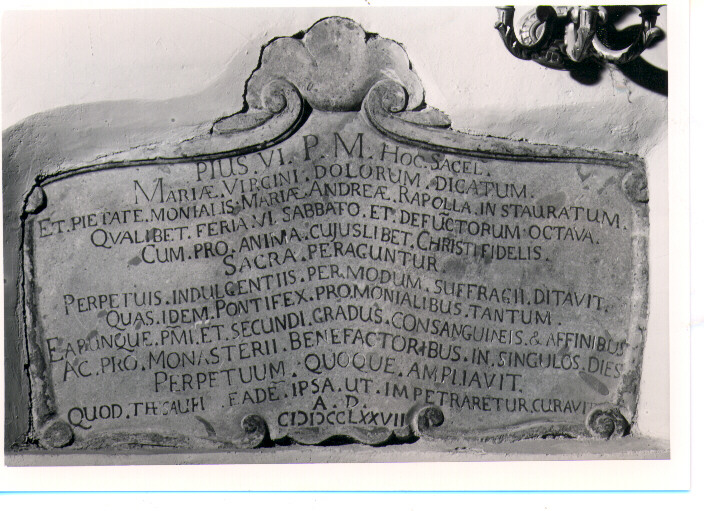 PIUS.VI.P.M.HOC.SACEL.
MARIÆ.VIRGINI.DOLORUM.DICATUM.
ET.PIETATE.MONIALIS.MARIÆ.ANDREÆ.RAPOLLA.INSTAURATUM.
QVALIBET.FERIA.VI.SABBATO.ET.DEFUCTORUM.OCTAVA.
CUM.PRO.ANIMA.CUJUSLIBET.CHRISTIFIDELIS.
SACRA.PERAGUNTUR.
PERPETUIS.INDULGENTIIS.PER.MODUM.SUFFRAGII.DITAVIT.
QUAS.IDEM.PONTIFEX.PROMONIALIBUS.TANTUM.
EARUNQUE.PM̃I.ET.SECUNDI.GRADUS.CONSANGUINEIS.&.AFFINIBUS
AC.PRO.MONASTERII.BENEFACTORIBUS.IN.SINGULOS.DIES
PERPETUUM.QUOQUE.AMPLIAVIT.
QUOD.EADẼ.IPSA.UT.IMPETRARETUR.CURAVIT
A.D.
CIƆIƆCCLXXVII